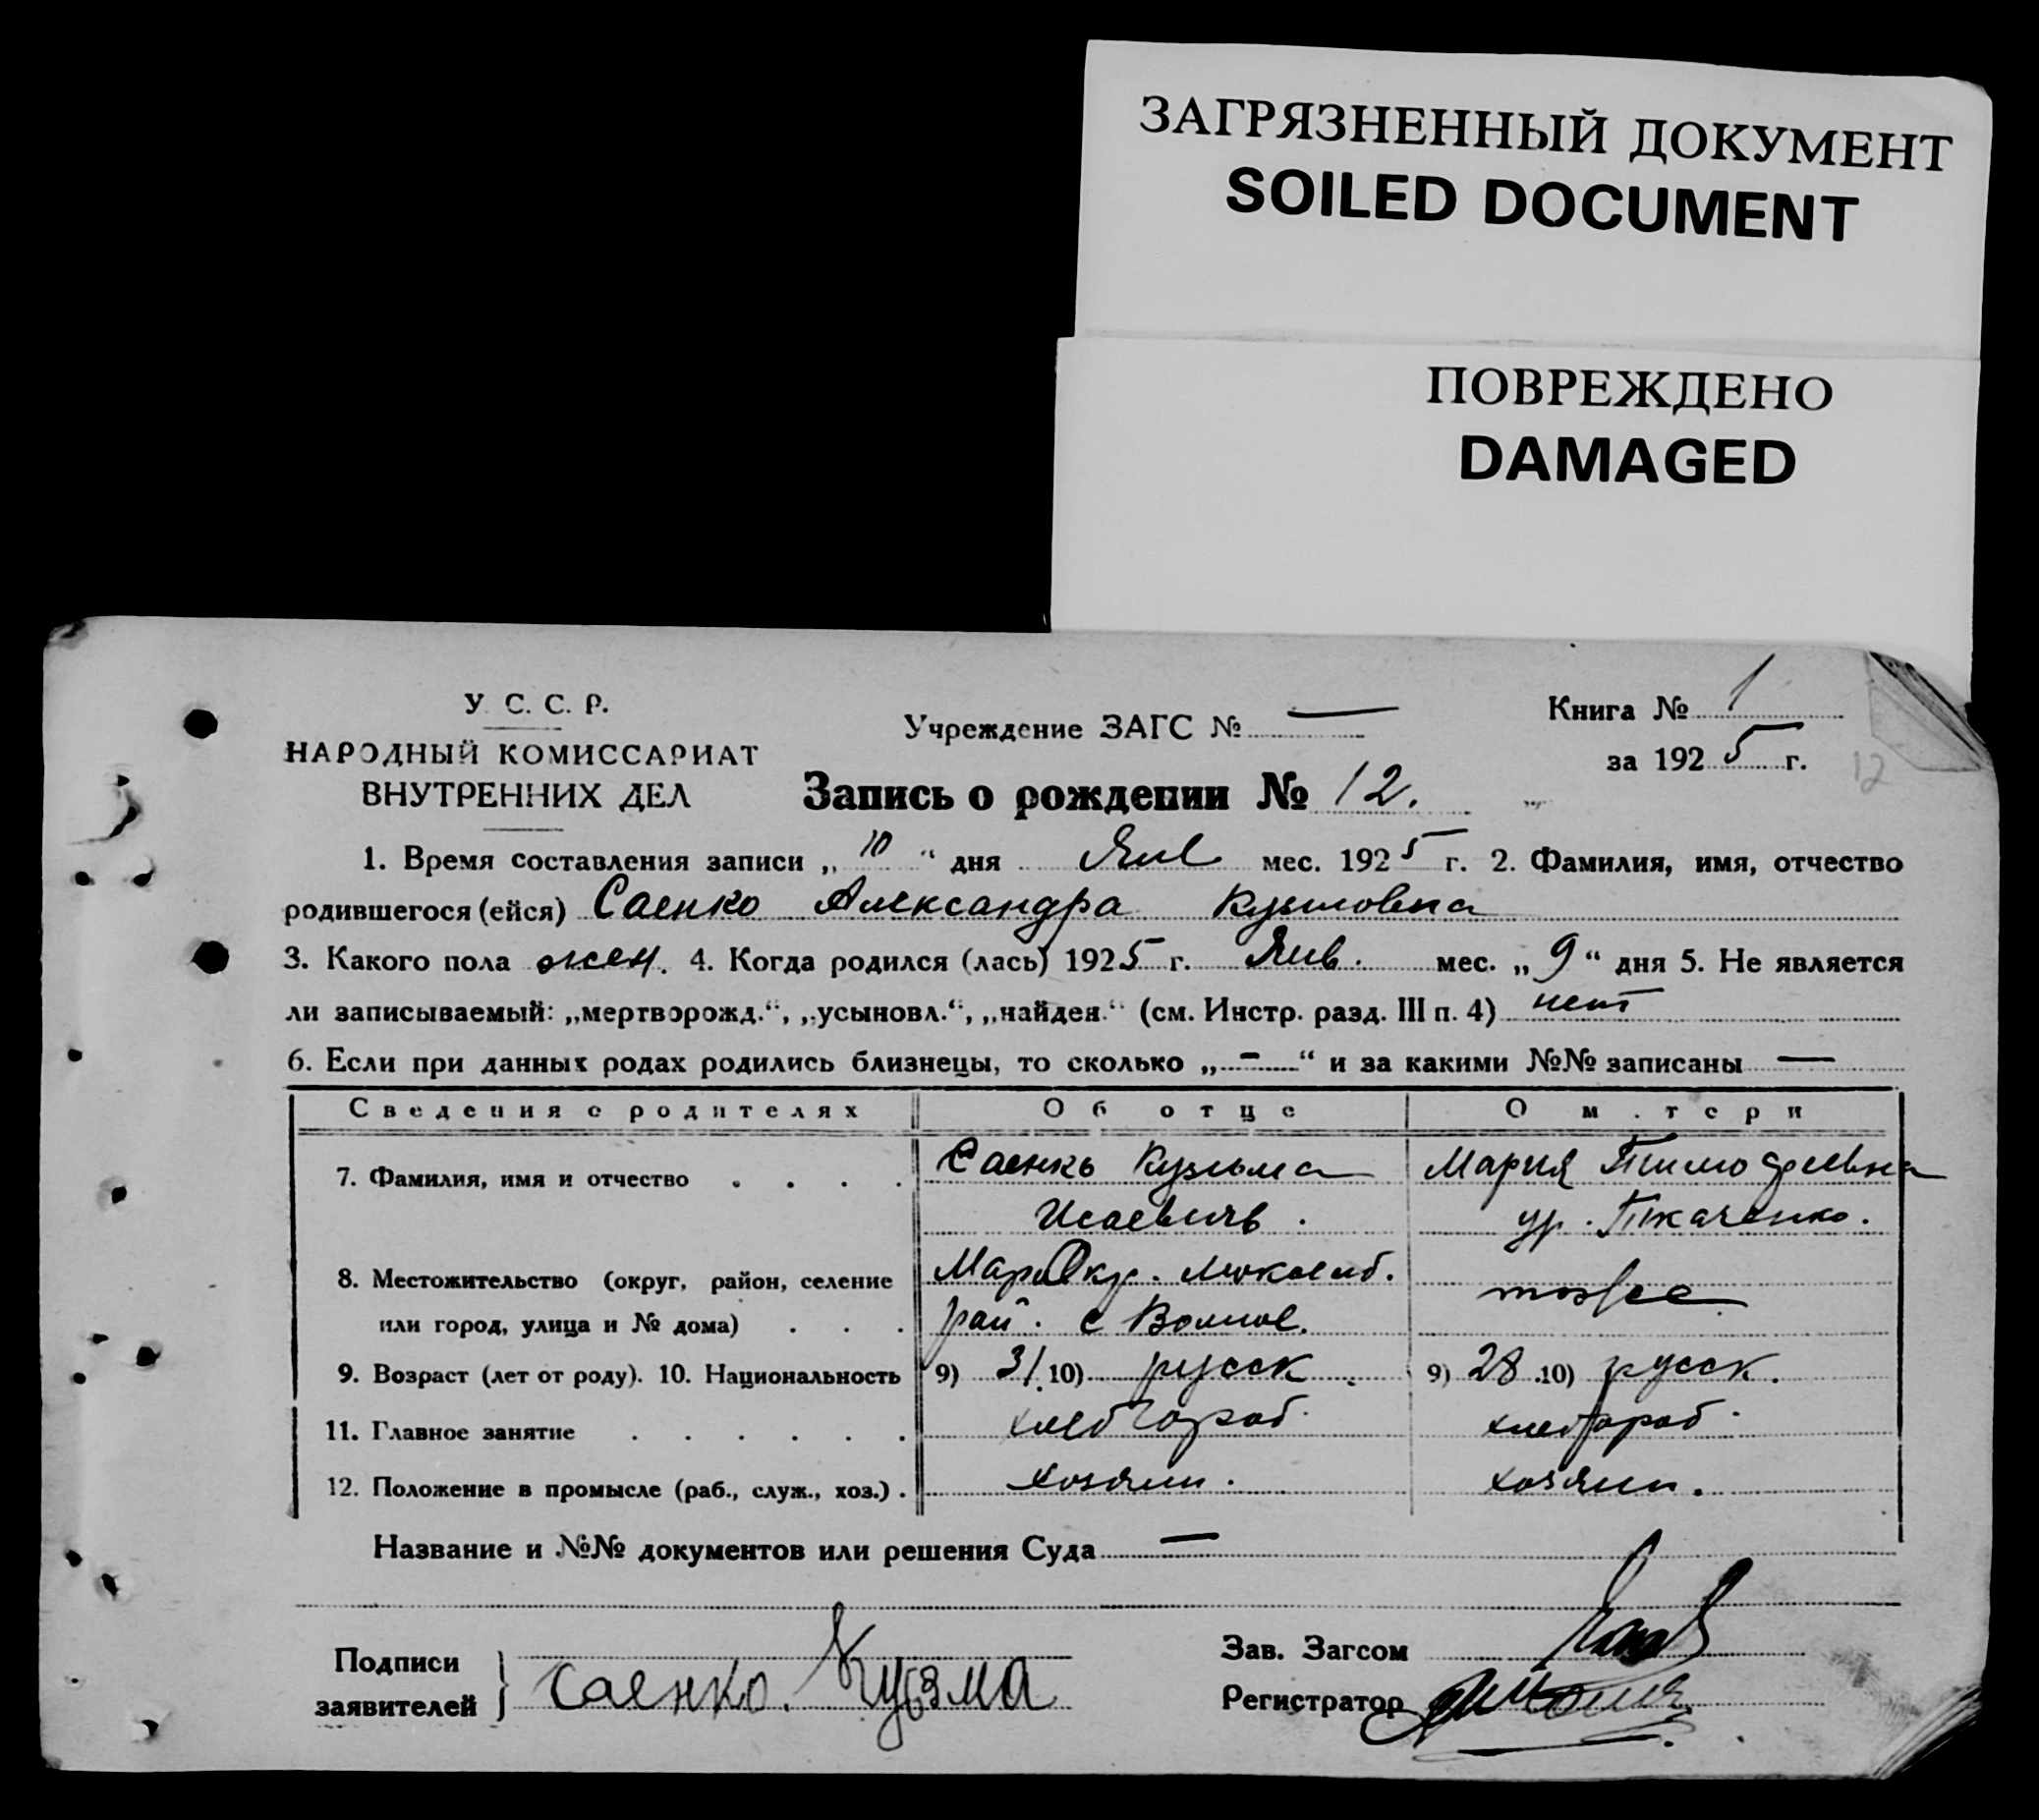 ЗАГРЯЗНЕННЫЙ ДОКУМЕНТ
SOILED DOCUMENT
ПОВРЕЖДЕНО
DAMAGED
У. С. С. Р.
НАРОДНЫЙ КОМИССАРИАТ
ВНУТРЕННИХ ДЕЛ
Учреждение ЗАГС № —
Книга № 1
за 1925 г.
12
Запись о рождении № 12.
1. Время составления записи „10“ дня Янв мес. 1925 г. 2. Фамилия, имя, отчество
родившегося (ейся) Саенко Александра Кузьмовна
3. Какого пола жен. 4. Когда родился (лась) 1925 г. Янв. мес. „9“ дня 5. Не является
ли записываемый: „мертворожд.“, „усыновл.“, „найден.“ (см. Инстр. разд. III п. 4) нет
6. Если при данных родах родились близнецы, то сколько „—“ и за какими №№ записаны —
Сведения о родителях Об отце О матери
7. Фамилия, имя и отчество Саенко Кузьма Мария Тимофеевна
Исаевичь. ур. Ткаченко.
8. Местожительство (округ, район, селение Мар. Окр. тоже
или город, улица и № дома) рай. с
9. Возраст (лет от роду). 10. Национальность 9) 31 10) русск. 9) 28 10) русск.
11. Главное занятие хлебораб. хлебораб.
12. Положение в промысле (раб., служ., хоз.) хозяин. хозяин.
Название и №№ документов или решения Суда —
Подписи
заявителей } Саенко. Кузма
Зав. Загсом
Регистратор